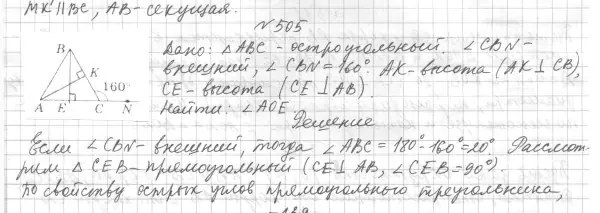 МК || BC, AB - секущая.
№505
B
K
160°
A E C N
Дано: △ABC - остроугольный, ∠CBN -
внешний, ∠CBN = 160°. AK - высота (AK ⊥ CB),
CE - высота (CE ⊥ AB).
Найти: ∠AOE
Решение
Если ∠CBN - внешний, тогда ∠ABC = 180° - 160° = 20°. Рассмот-
рим △ CEB - прямоугольный (CE ⊥ AB, ∠CEB = 90°).
По свойству острых углов прямоугольного треугольника,